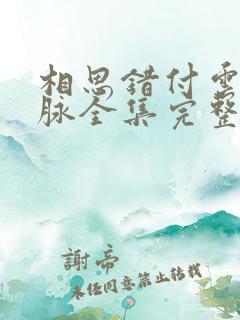 相思错付雪
脉全集完整
謝帝
未经同意禁止转载